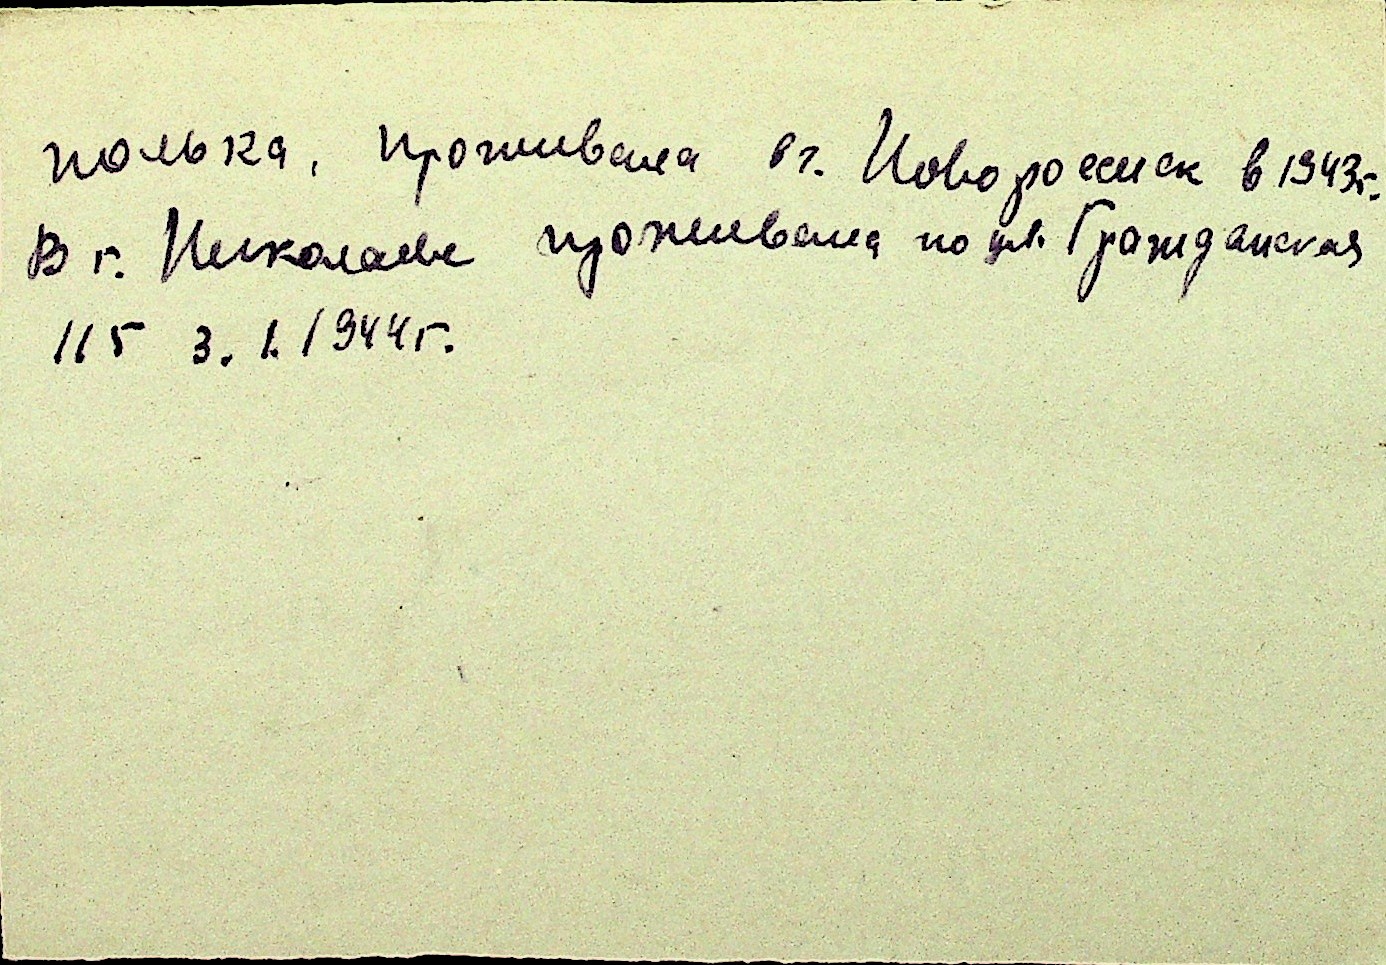 полька, проживала в г. Новороссиск в 1943г.
В г. Николаеве проживала по ул. Гражданская
115 3. 1. 1944г.